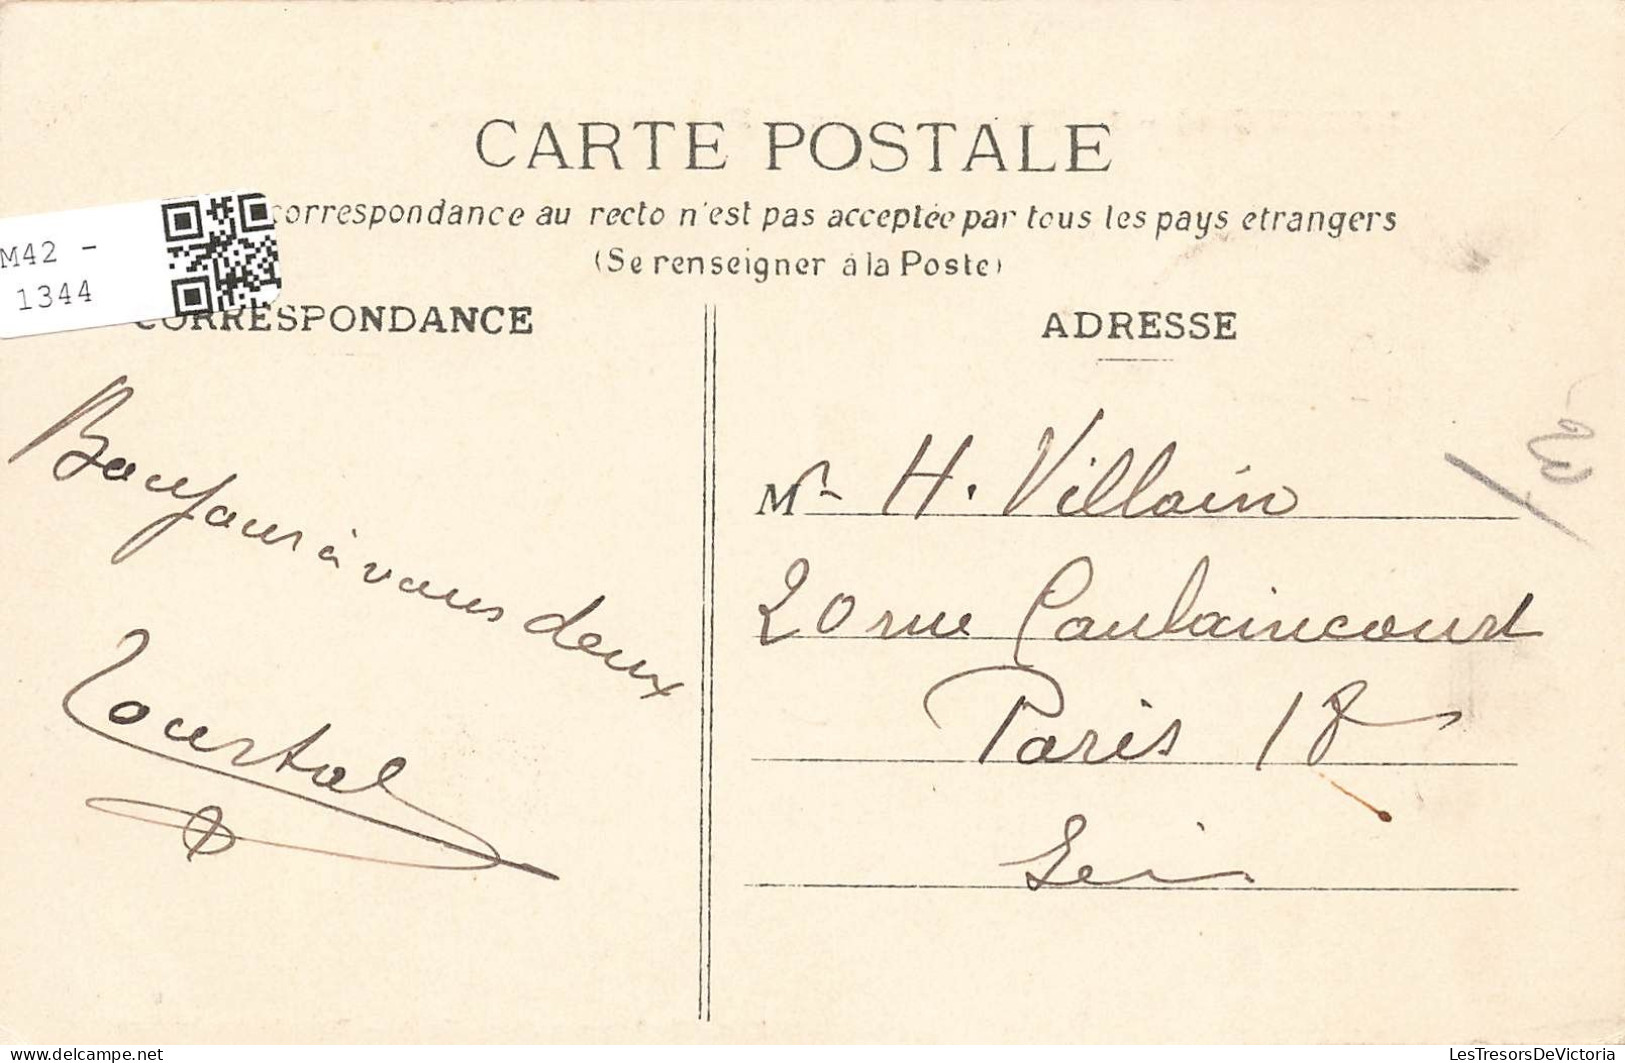 CARTE POSTALE
correspondance au recto n'est pas acceptée par tous les pays etrangers
(Se renseigner à la Poste)
M42 -
1344
CORRESPONDANCE
Bonjour à vous deux
ADRESSE
Mr H. Villain
20 rue Caulaincourt
Paris 18
Seine
www.delcampe.net
LesTresorsDeVictoria